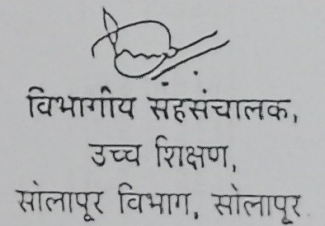 विभागीय सहसंचालक,
उच्च शिक्षण,
सोलापूर विभाग, सोलापूर